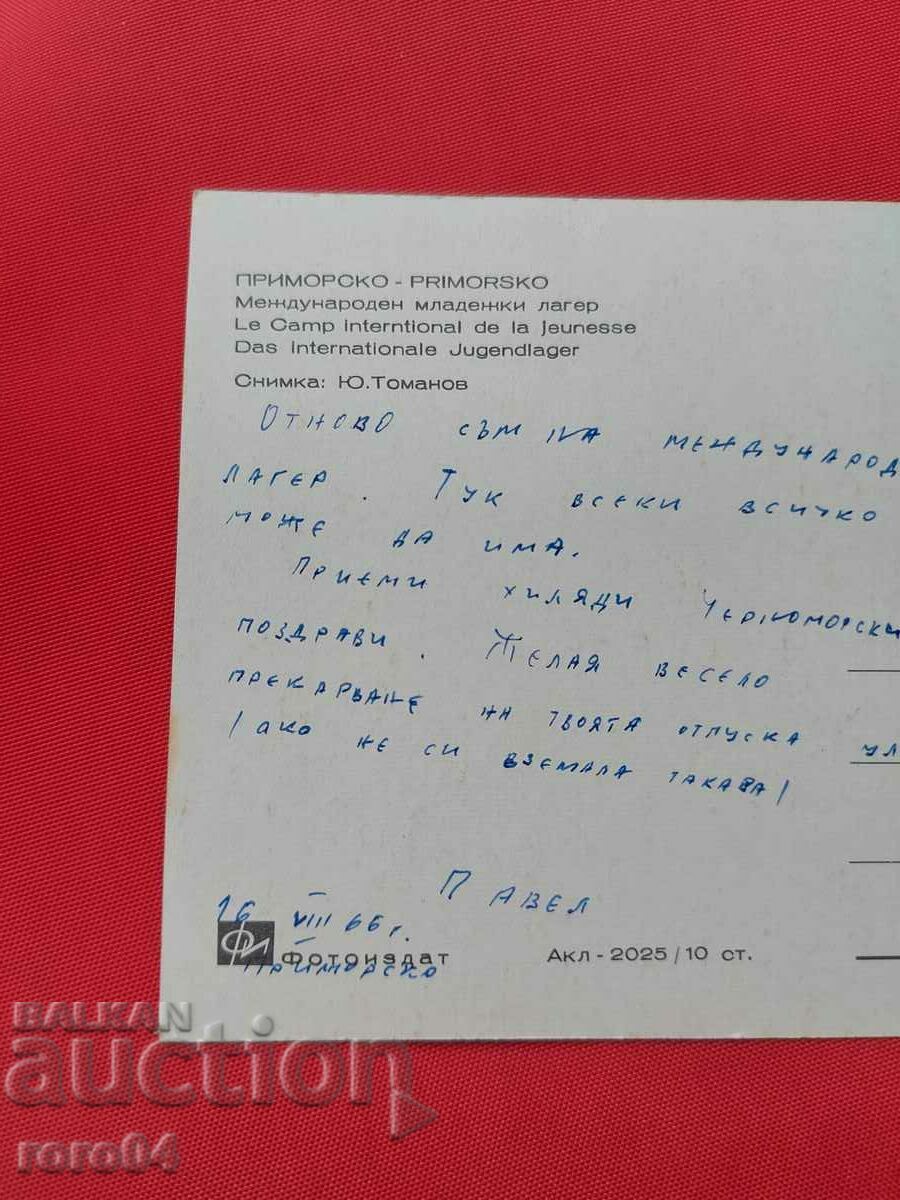 ПРИМОРСКО - PRIMORSKO
Международен младежки лагер
Le Camp interntional de la Jeunesse
Das internationale Jugendlager
Снимка: Ю.Томанов
ОТНОВО СЪМ НА МЕЖДУНАРОД
ЛАГЕР. ТУК ВСЕКИ ВСИЧКО
МОЖЕ ДА ИМА.
ПРИЕМИ ХИЛЯДИ ЧЕРНОМОРСКИ
ПОЗДРАВИ. ЖЕЛАЯ ВЕСЕЛО
ПРЕКАРВАНЕ НА ТВОЯТА ОТПУСКА
/ АКО НЕ СИ ВЗЕМАЛА ТАКАВА /
ул
ПАВЕЛ
16 VIII 66 г.
ПРИМОРСКО
ФИ Фотоиздат
Акл - 2025/10 ст.
BALKAN
auction
roro04